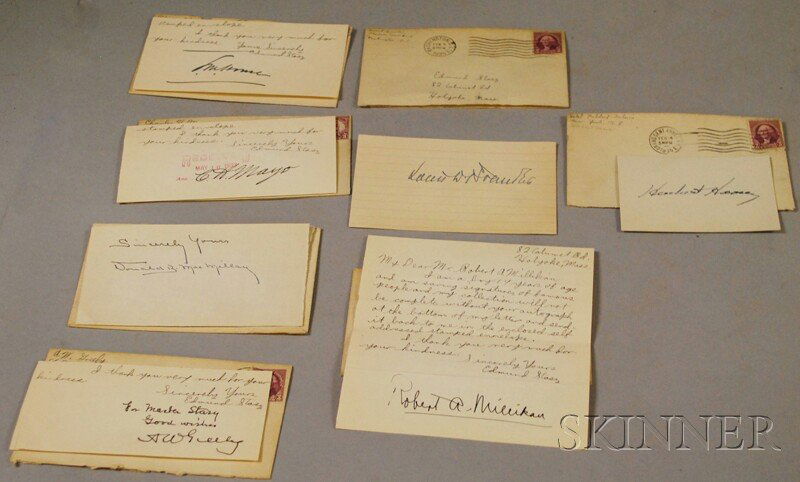 stamped envelope.
I thank you very much for
your kindness.
Yours Sincerely
Edmund Stasz
Edmund Stasz
82 Calumet Rd
Holyoke Mass
FEB 4
stamped envelope.
I thank you very much for
your kindness. Sincerely Yours
Edmund Stasz
MAY 10
C H Mayo
FEB 4
Herbert Hoover
Sincerely Yours
Donald B. MacMillan
82 Calumet Rd.
Holyoke, Mass
My Dear Mr. Robert A Millikan
I am a boy 9 years of age
and am saving signatures of famous
people and my collection will not
be complete without your autograph
at the bottom of my letter and send
it back to me in the enclosed self
addressed stamped envelope.
I thank you very much for
your kindness. Sincerely Yours
Edmund Stasz
Robert A. Millikan
I thank you very much for your
kindness.
Sincerely Yours
Edmund Stasz
For Master Stasz
Good wishes
A W Greely
SKINNER